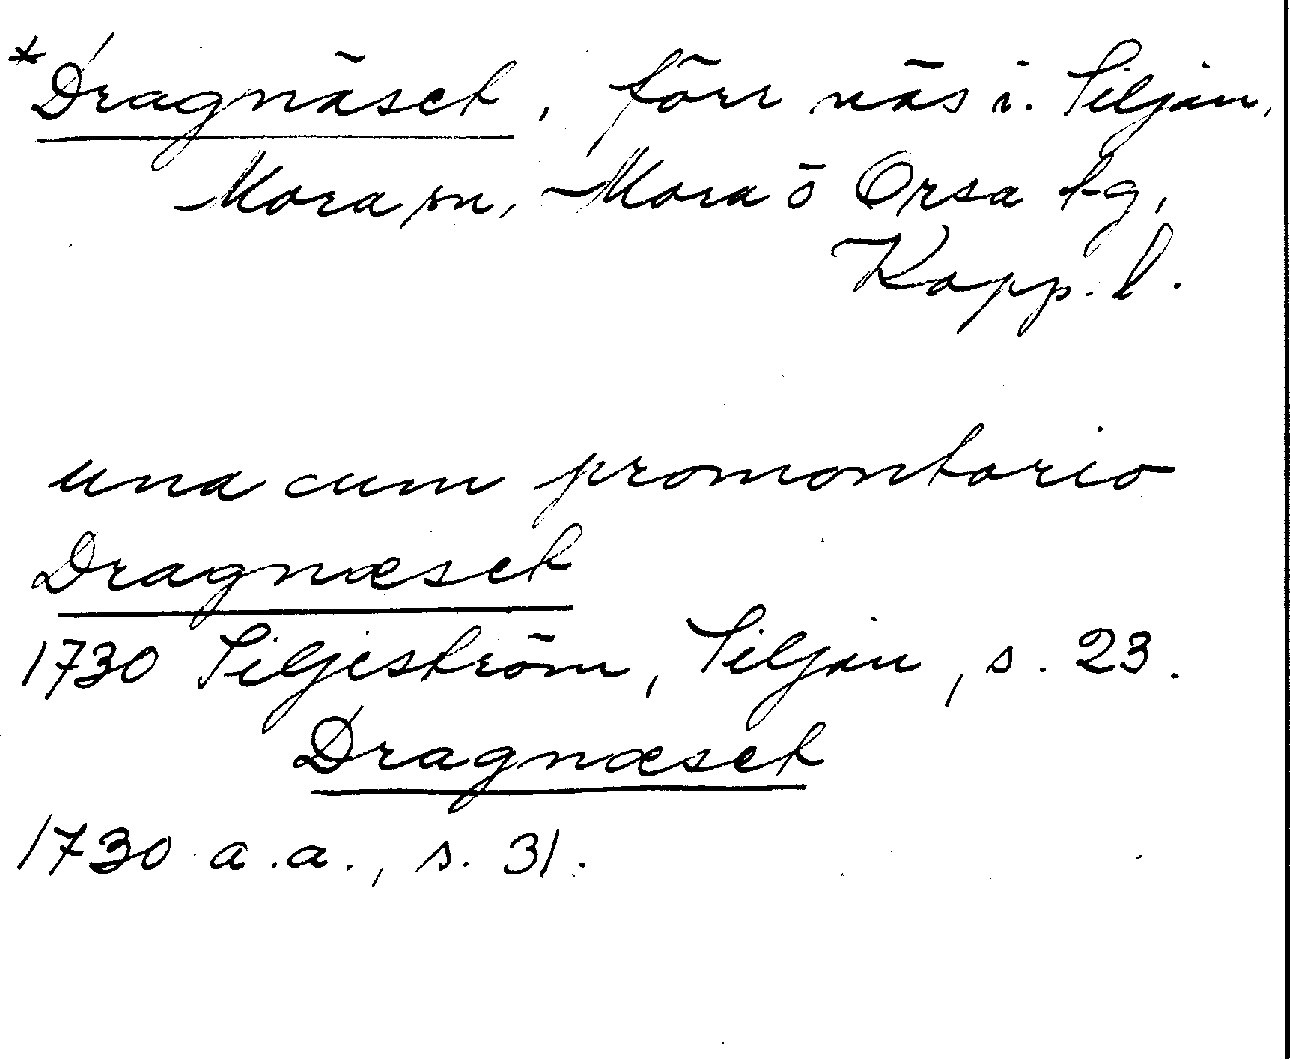 *Dragnäset, förr näs i. Siljan,
Mora sn, Mora ö Orsa tg,
Kopp. l.
una cum promontorio
Dragnæset
1730 Siljeström, Siljan, s. 23.
Dragnæset
1730 a.a., s. 31.